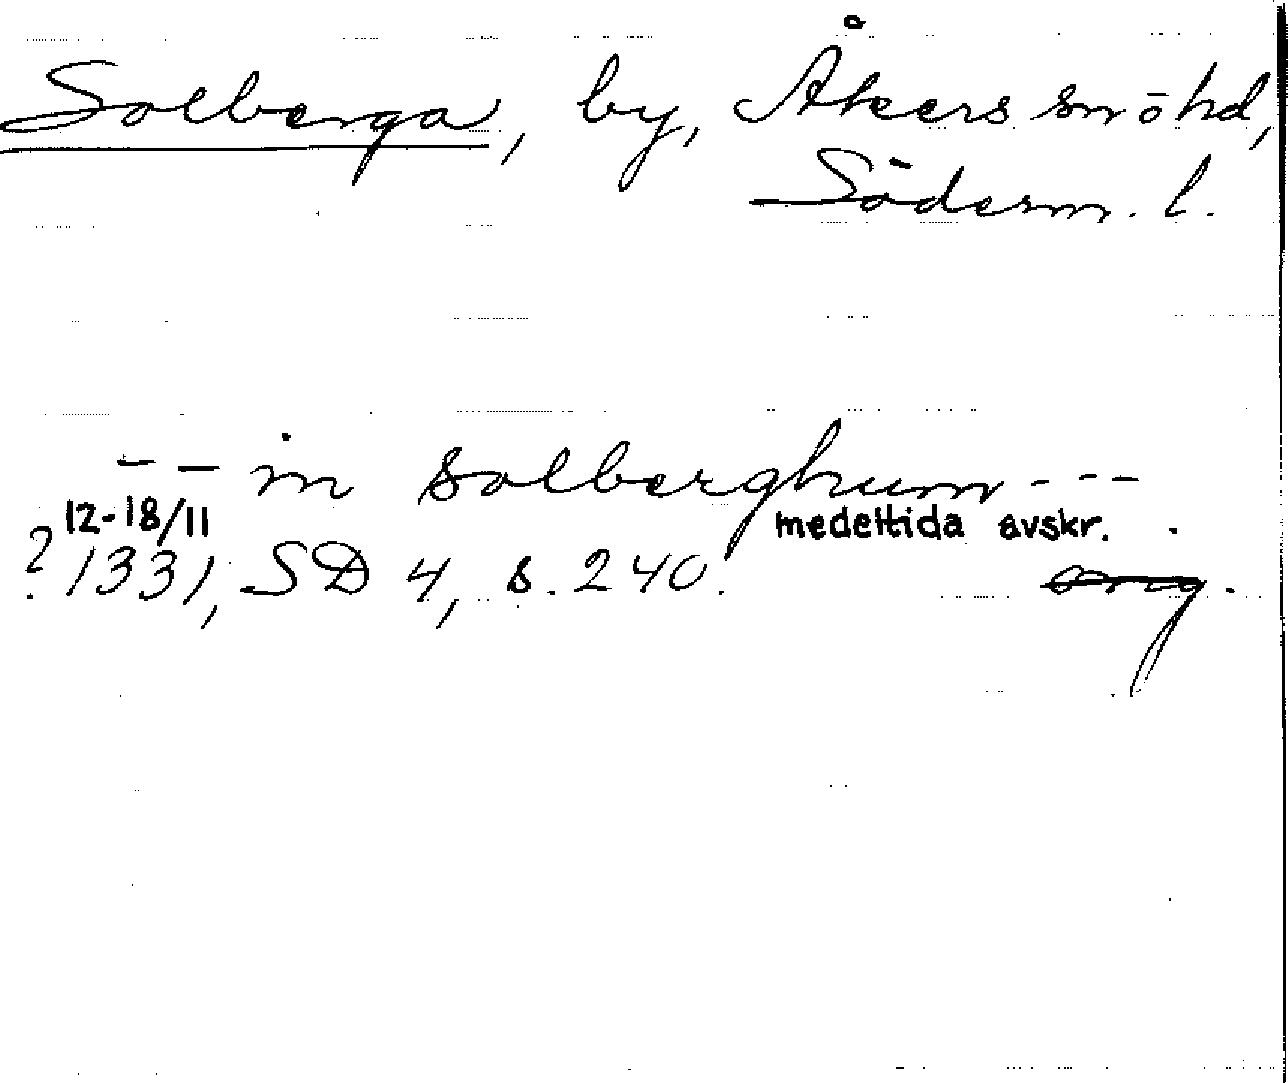 Solberga, by, Åkers sn ö hd,
Söderm. l.
- - in solberghum - - -
12-18/11 medeltida avskr.
? 1331, SD 4, s. 240. orig.